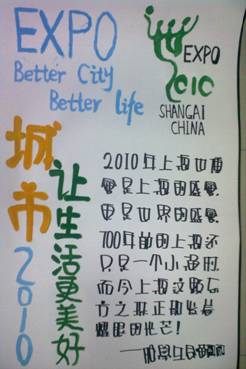 EXPO
Better City
Better life
EXPO
2010
SHANGAI
CHINA
城市2010
让生活更美好
2010年上海世博
会是上海的盛会
更是世界的盛会
100年前的上海还
只是一个小渔村
而今上海这颗东
方之珠正散发着
耀眼的光芒!